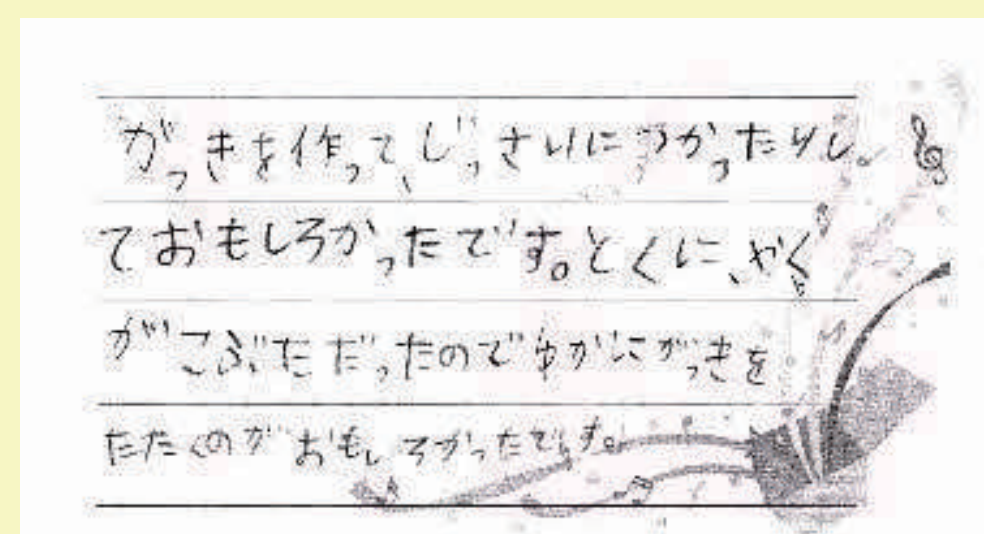 がっきを作って、じっさいにつかったりし
ておもしろかったです。とくに、やく
がこぶただったのでゆかにがっきを
たたくのがおもしろかったです。